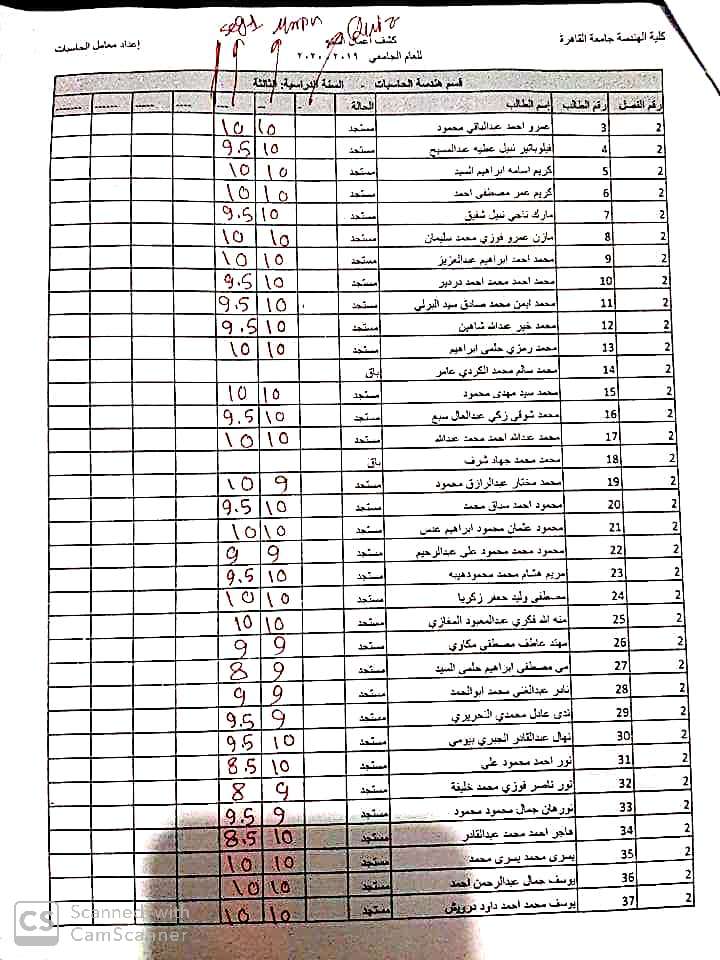 seg1 Quiz
كلية الهندسة جامعة القاهرة كشف أعمال إعداد معامل الحاسبات
للعام الجامعي ٢٠١٩ ٢٠٢٠
قسم هندسة الحاسبات - السنة الدراسية: الثالثة
رقم الفصل رقم الطالب إسم الطالب الحالة
2 3 عمرو احمد عبدالباقي محمود مستجد 10 10
2 4 فيلوباتير نبيل عطيه عبدالمسيح مستجد 10 9.5
2 5 كريم اسامه ابراهيم السيد مستجد 10 10
2 6 كريم عمر مصطفى احمد مستجد 10 10
2 7 مارك ناجي نبيل شفيق مستجد 10 9.5
2 8 مازن عمرو فوزي محمد سليمان مستجد 10 10
2 9 محمد احمد ابراهيم عبدالعزيز مستجد 10 10
2 10 محمد احمد محمد احمد دردير مستجد 10 9.5
2 11 محمد ايمن محمد صادق سيد البرلي مستجد 10 9.5
2 12 محمد خير عبدالله شاهين مستجد 10 9.5
2 13 محمد رمزي حلمى ابراهيم مستجد 10 10
2 14 محمد سالم محمد الكردي عامر باق
2 15 محمد سيد مهدى محمود مستجد 10 10
2 16 محمد شوقى زكي عبدالعال سبع مستجد 10 9.5
2 17 محمد عبدالله احمد محمد عبدالله مستجد 10 10
2 18 محمد محمد جهاد شرف باق
2 19 محمد مختار عبدالرازق محمود مستجد 9 10
2 20 محمود احمد محمد مستجد 10 9.5
2 21 محمود عثمان محمود ابراهيم عدس مستجد 10 10
2 22 محمود محمد محمود على عبدالرحيم مستجد 9 9
2 23 مريم هشام محمد محمودهيبه مستجد 10 9.5
2 24 مصطفى وليد جعفر زكريا مستجد 10 10
2 25 منه الله فكري عبدالمعبود المغازي مستجد 10 10
2 26 مهند عاطف مصطفى مكاوي مستجد 9 9
2 27 مى مصطفى ابراهيم حلمى السيد مستجد 9 8
2 28 نادر عبدالغنى محمد ابوالحمد مستجد 9 9
2 29 ندى عادل محمدي التحريري مستجد 9 9.5
2 30 نهال عبدالقادر الجبري بيومى مستجد 10 9.5
2 31 نور احمد محمود على مستجد 10 8.5
2 32 نور ناصر فوزي محمد خليفة مستجد 9 8
2 33 نورهان جمال محمود محمود مستجد 9 9.5
2 34 هاجر احمد محمد عبدالقادر مستجد 10 8.5
2 35 يسرى محمد يسرى محمد مستجد 10 10
2 36 يوسف جمال عبدالرحمن احمد مستجد 10 10
2 37 يوسف محمد احمد داود درويش مستجد 10 10
CS Scanned with
CamScanner